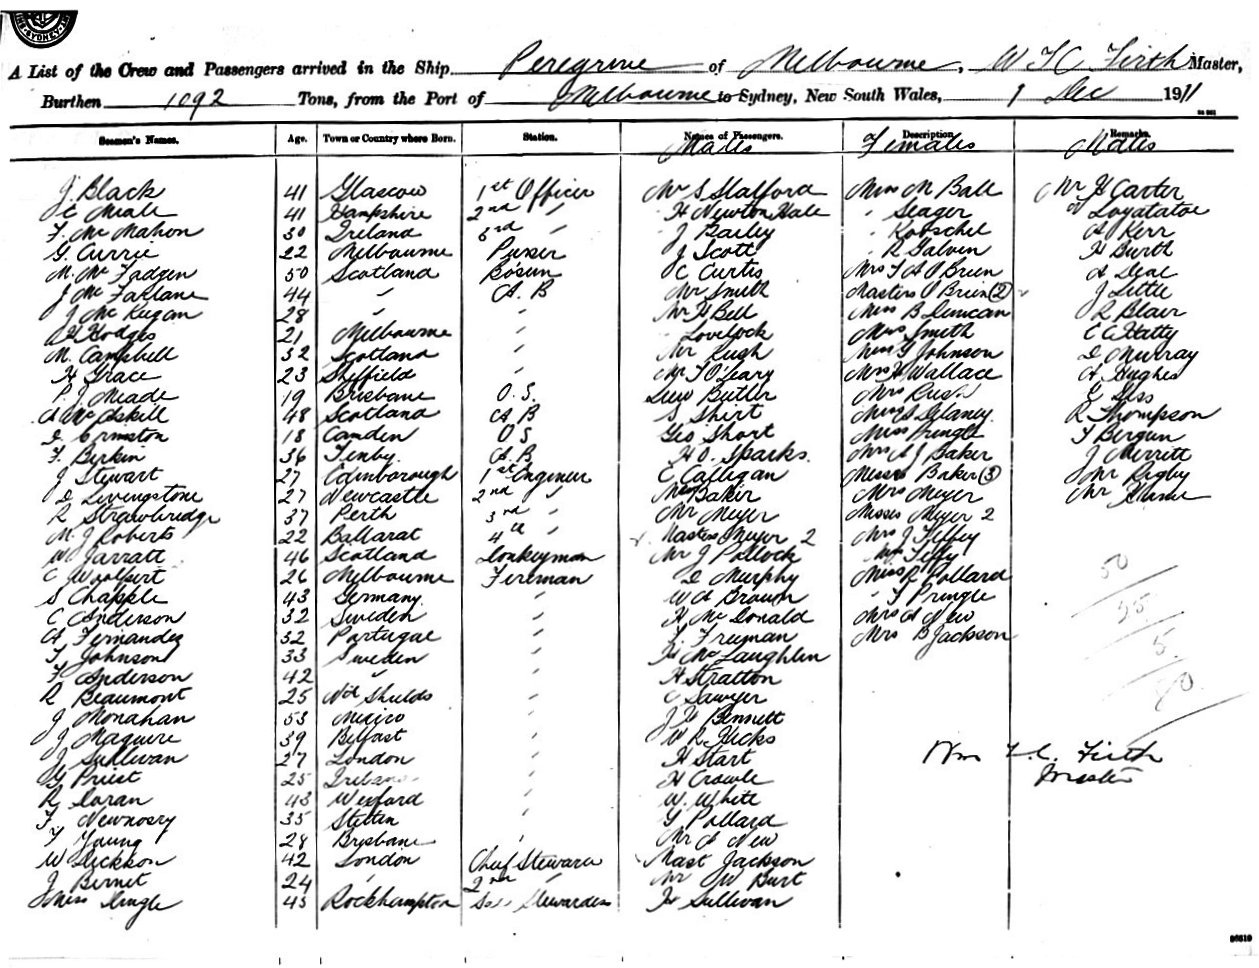 SYDNEY
A List of the Crew and Passengers arrived in the Ship Peregrine of Melbourne, W F C Firth Master,
Burthen 1092 Tons, from the Port of Melbourne to Sydney, New South Wales, 1 Dec 1911
Seamen's Names. Age. Town or Country where Born. Station. Names of Passengers. Description. Remarks.
Males Females Males
J Black 41 Glascow 1st Officer Mr S Stafford Miss M Ball Mr H Carter
C Meale 41 Hampshire 2nd " H Newton Hale " Seager
F Mc Mahon 30 Ireland 3rd " J Bailey " A Kerr
G Currie 22 Melbourne Purser J Scott " R Galvin H Burth
M. Mc Fadgen 50 Scotland Bosun C Curtis Mrs F A O'Brien A Deal
J Mc Farlane 44 " A. B Mr Smith Masters O'Brien (2) J Little
J Mc Kugan 28 " Mr H Bell Miss B Duncan R Blair
A Hodges 21 Melbourne " Lovelock Miss Smith C C Hatty
M. Campbell 32 Scotland " Mr Rush Miss G Johnson D Murray
H Grace 23 Sheffield " Mr T O'Leary Mrs H Wallace A Hughes
P. J. Meade 19 Brisbane O. S. Butler Mrs Rush
A Mc Askill 48 Scotland A B S Shirt Miss S Delaney R Thompson
D Ormston 18 Camden O S Geo Short Miss Pringle T Bergun
F. Birkin 36 Tenby. A. B. H O. Sparks. Mrs A J Baker J Merritt
J Stewart 27 Edinborough 1st Engineer E Calligan Misses Baker (3) Mr Rigby
D Livingstone 27 Newcastle 2nd " Miss Baker Mrs Meyer Mr
R Strawbridge 37 Perth 3rd " Mr Meyer Misses Meyer 2
M. J Roberts 22 Ballarat 4th " Masters Meyer 2 Mrs J
W Jarratt 46 Scotland Donkeyman Mr J Pollock
C Woolpert 26 Melbourne Fireman D Murphy Miss R Pollard 50
S Chapple 43 Germany. " W A Brown " T Pringle 35
C Anderson 32 Sweden " H Mc Donald Mrs A New 5.
A Fernandez 32 Portugal " F. Freeman Mrs B Jackson 90
F Johnson 33 Sweden " H Mc Laughlin
F Anderson 42 " " H Stratton
R Beaumont 25 Nth Shields " C Sawyer
J Monahan 53 Mexico " J H Bennett
J Maguire 39 Belfast " W R Hicks
J Sullivan 27 London " H Start Wm F. C. Firth
G Priest 25 Ireland " H Crowle Master
R Doran 43 Wexford " W. White
F. Newnosry 35 Stettin " G Pollard
F Young 28 Brisbane " Mr A New
W Dickson 42 London Chief Steward Mast Jackson
J Bernet 24 " 2nd " Mr W Burt
Miss Dingle 45 Rockhampton Stewardess H Sullivan